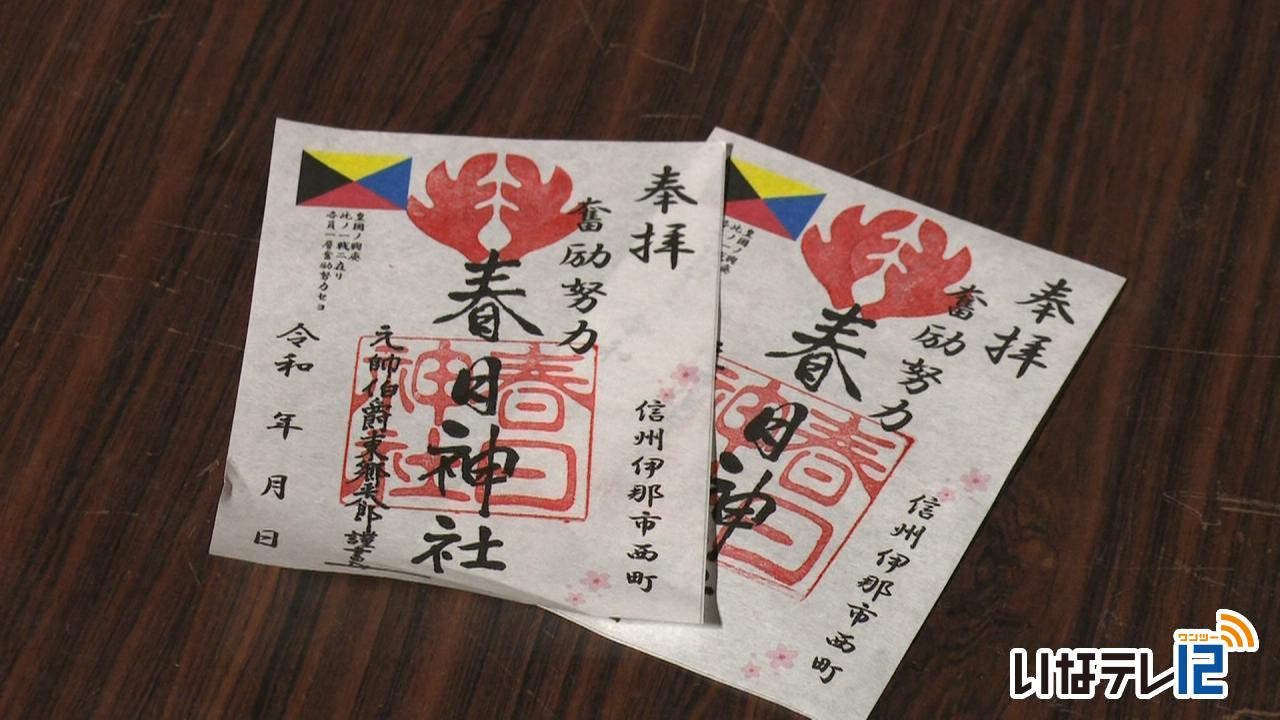 奉拝
信州伊那市西町
奮励努力
春日神社
春日
神社
元帥伯爵東郷平八郎謹書
皇國ノ興廃
此ノ一戦ニ在リ
各員一層奮励努力セヨ
令和　年　月　日
奉拝
信州伊那市西町
奮励努力
春日神
春日
神
皇國ノ
此ノ一
いなテレ12
ワンツー